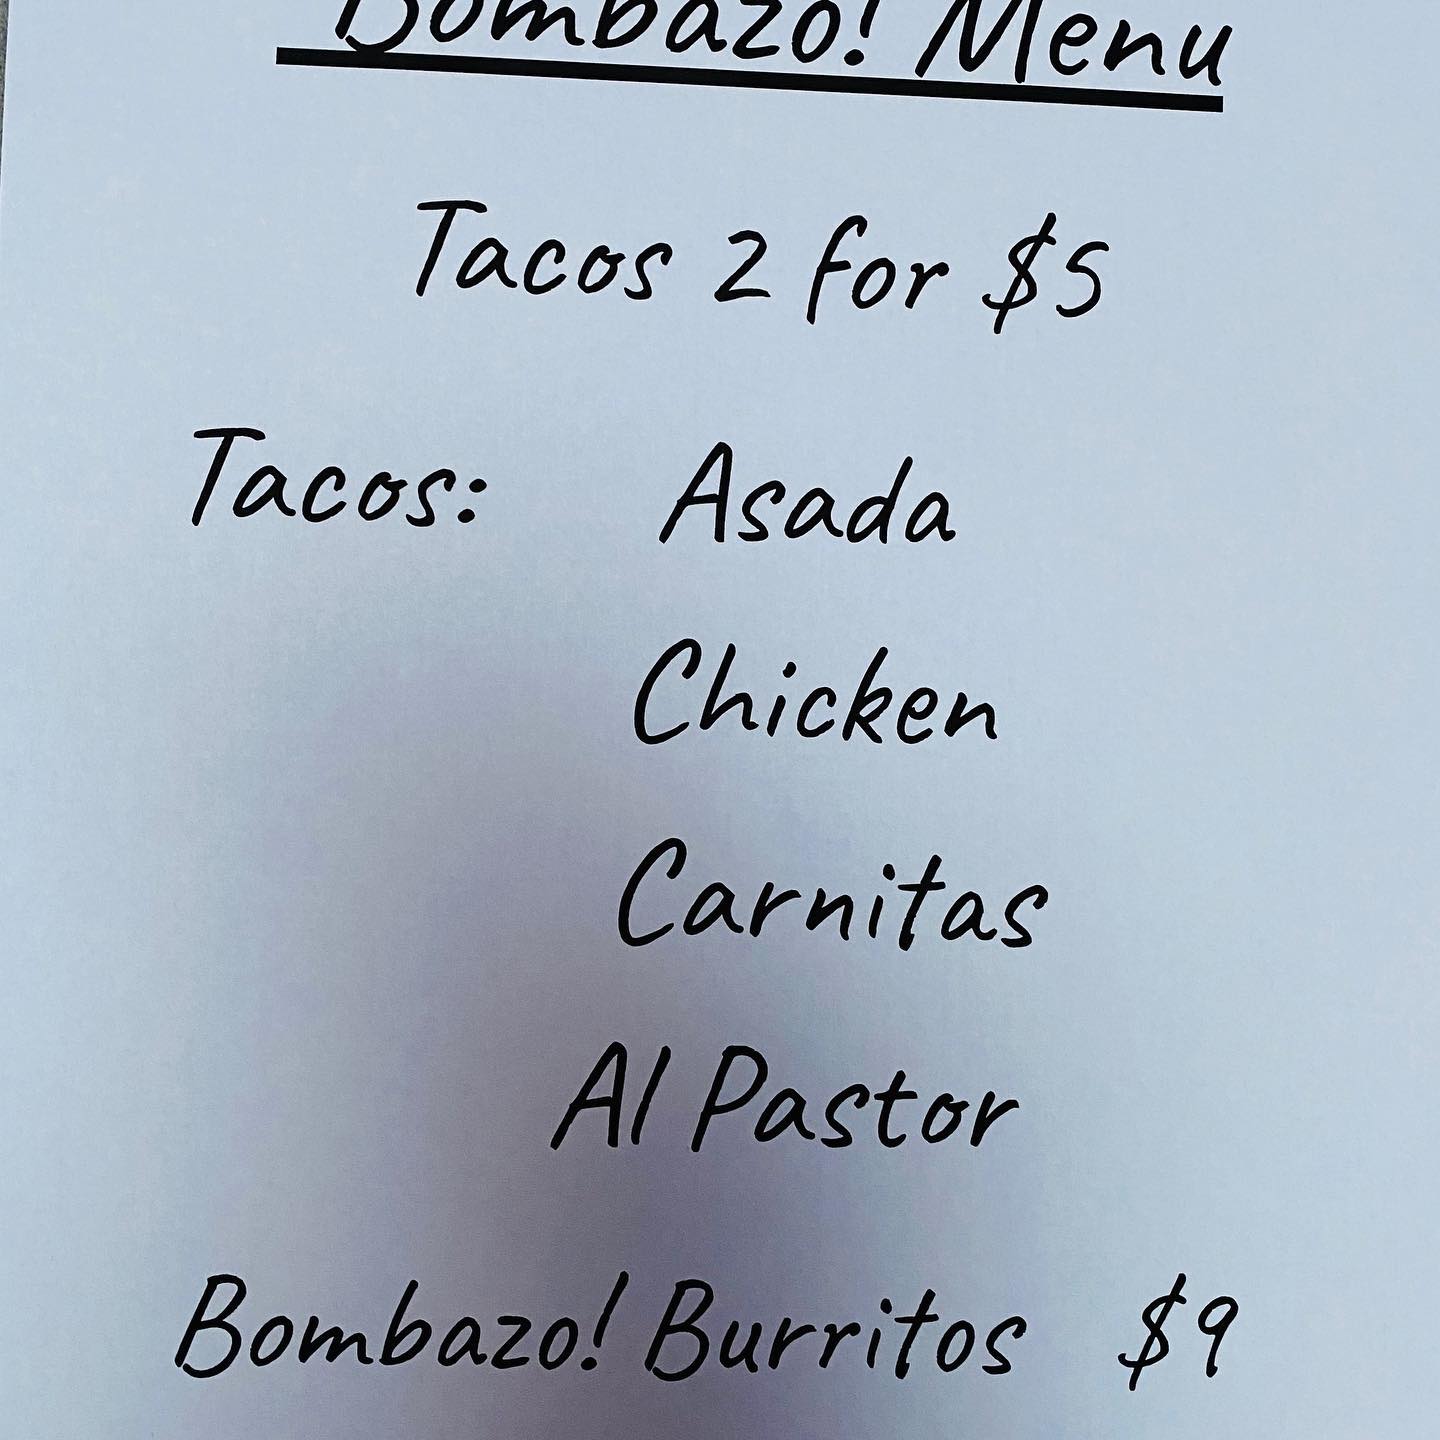 Bombazo! Menu
Tacos 2 for $5
Tacos: Asada
Chicken
Carnitas
Al Pastor
Bombazo! Burritos $9